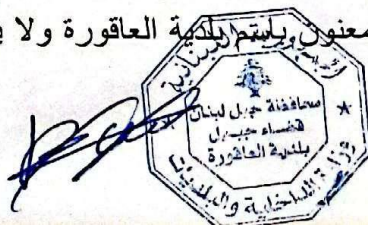 معنون باسم بلدية العاقورة ولا ي
الجمهورية اللبنانية
محافظة جبل لبنان
قضاء جبيل
بلدية العاقورة
وزارة الداخلية والبلديات